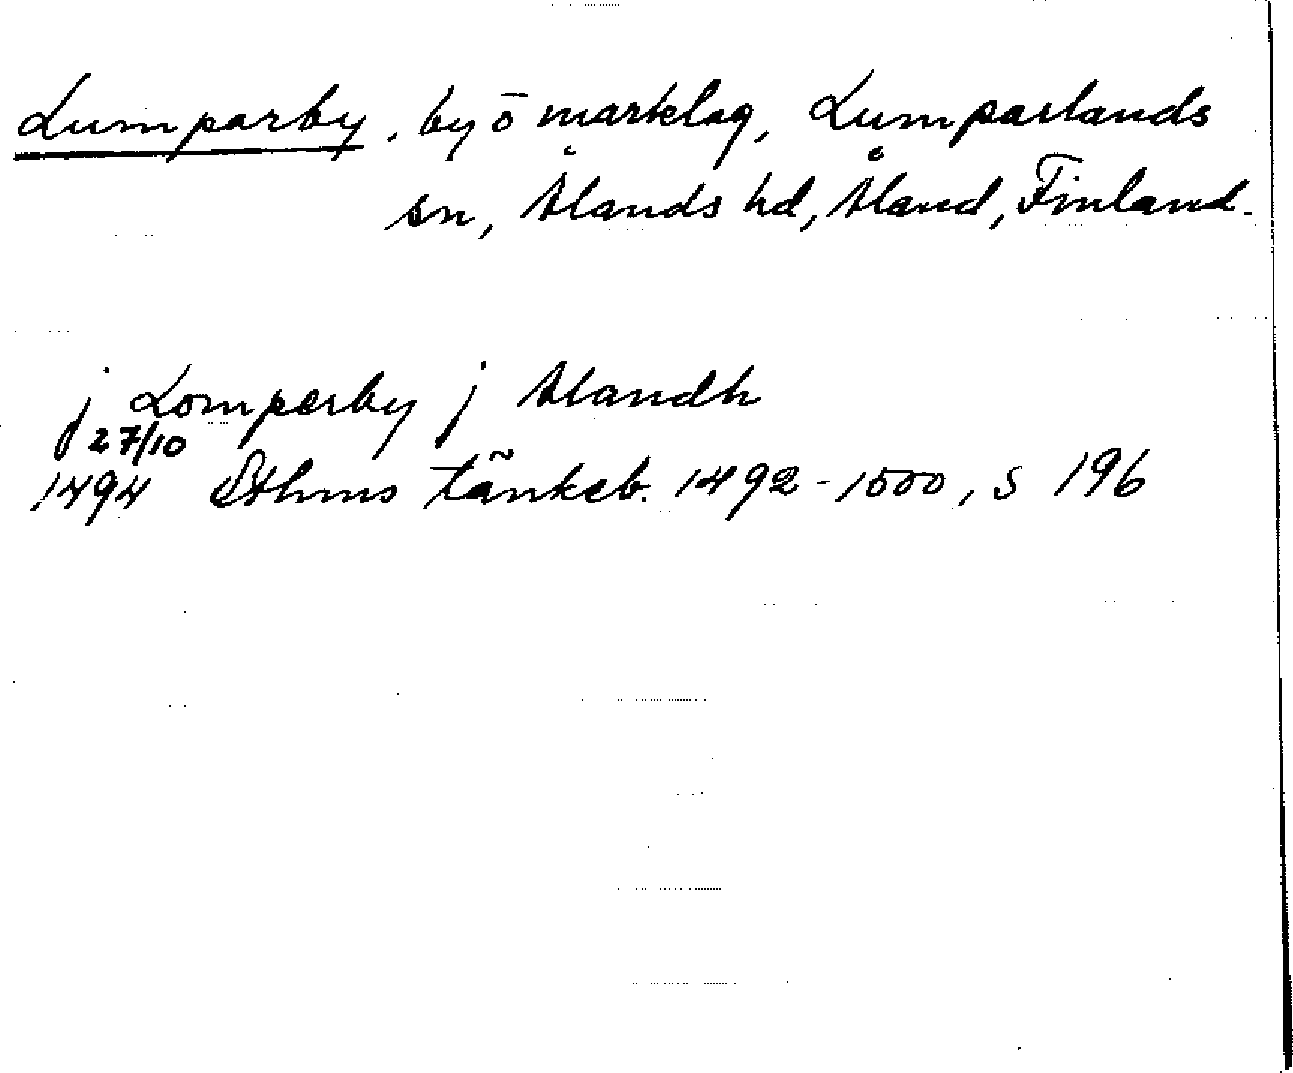 Lumparby, by o marklag, Lumparlands
sn, Ålands hd, Åland, Finland.
j Lomperby j Alandh
27/10
1494 Sthms tänkeb. 1492-1500, s 196